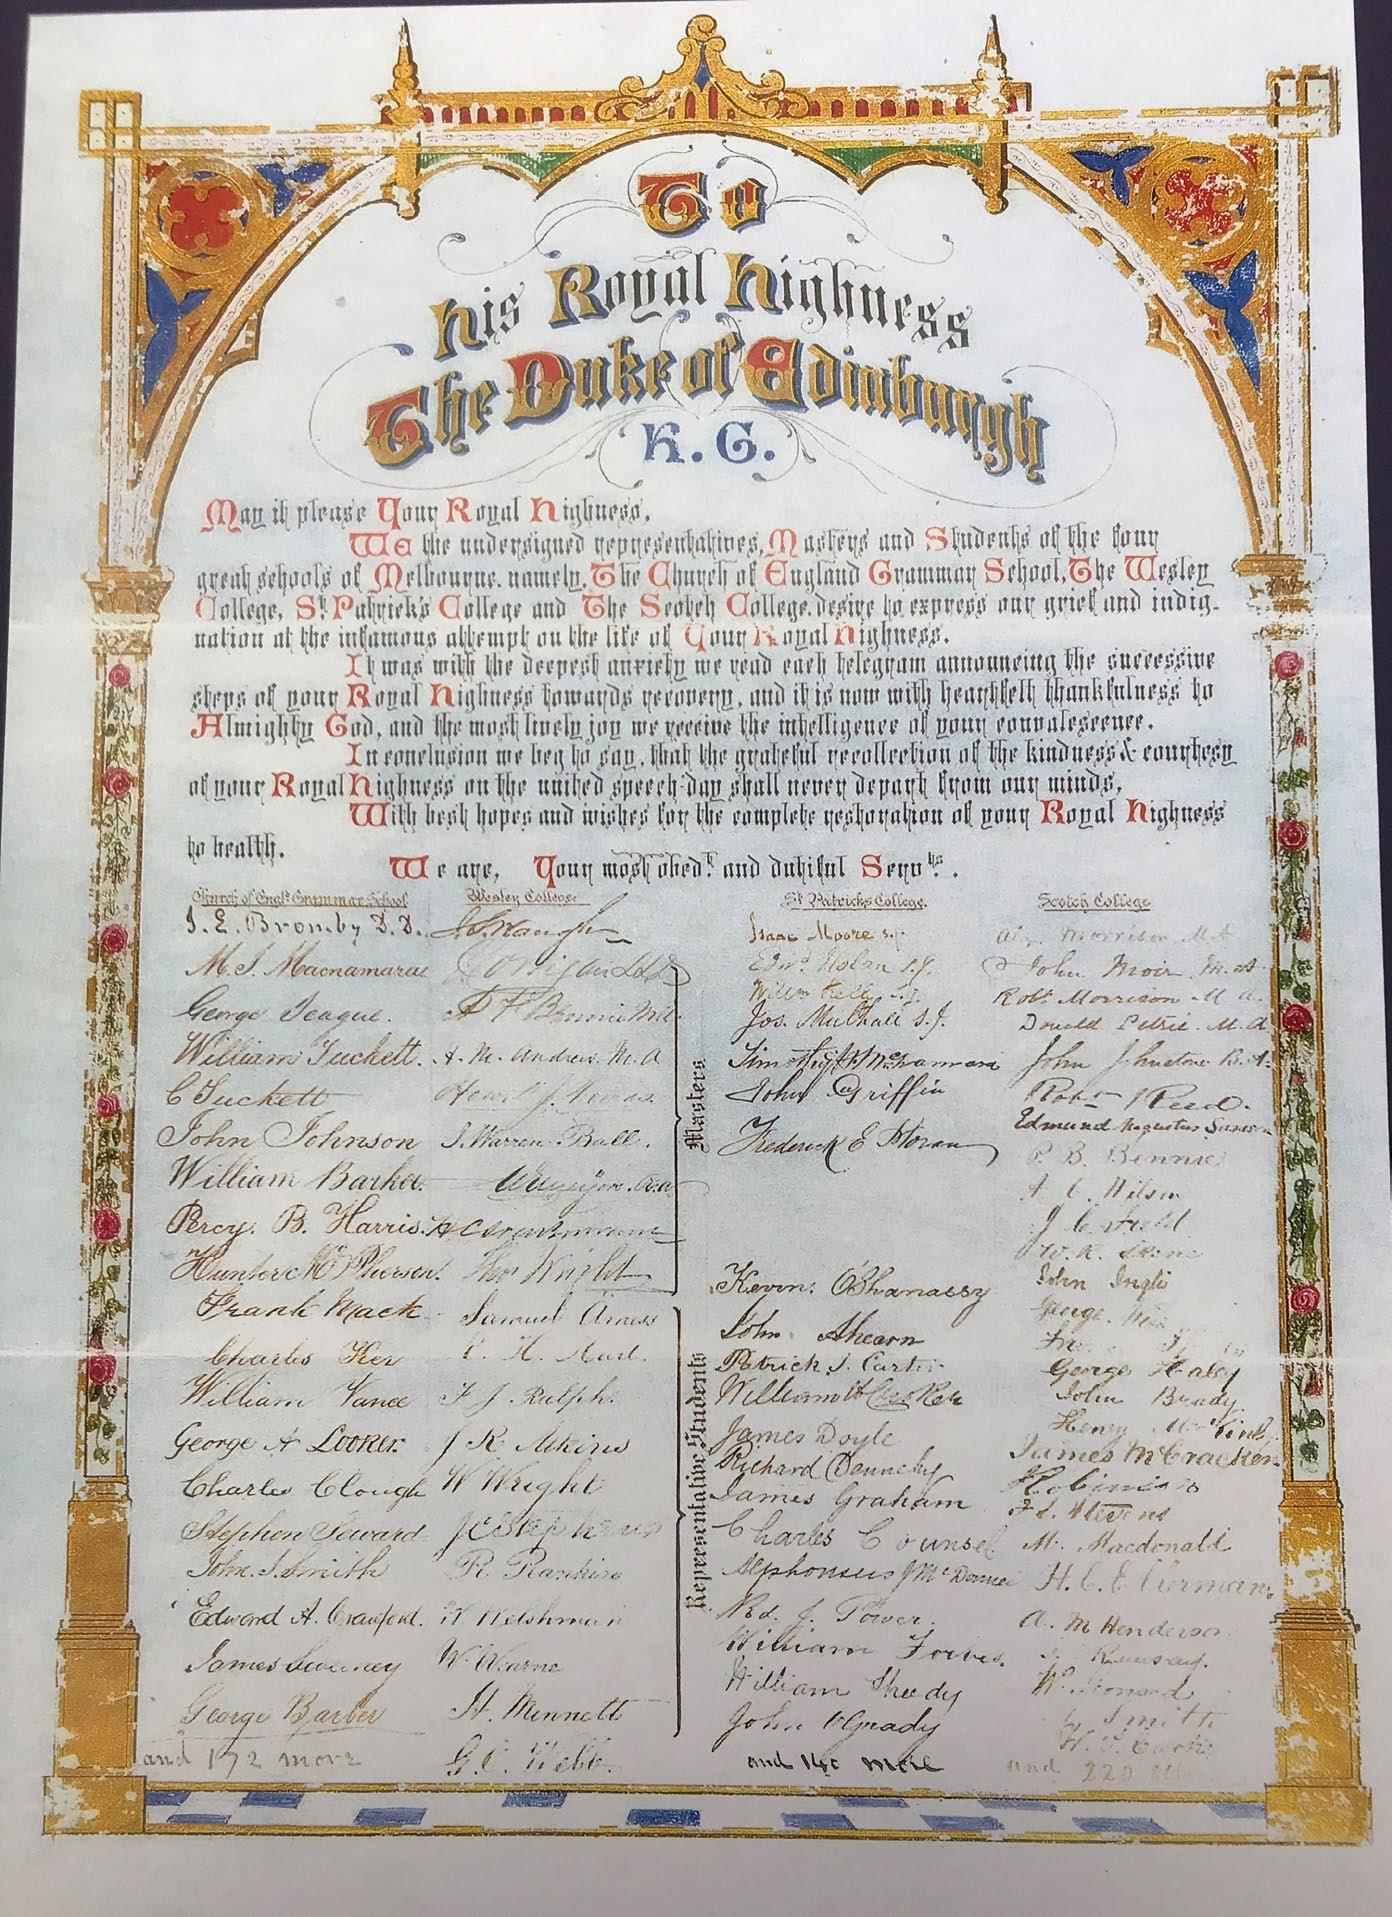 To
His Royal Highness
The Duke of Edinburgh
K. G.
May it please Your Royal Highness,
We the undersigned representatives, Masters and Students of the four
great schools of Melbourne, namely, The Church of England Grammar School, The Wesley
College, St. Patrick's College and The Scotch College, desire to express our grief and indig-
nation at the infamous attempt on the life of Your Royal Highness.
It was with the deepest anxiety we read each telegram announcing the successive
steps of your Royal Highness towards recovery, and it is now with heartfelt thankfulness to
Almighty God, and the most lively joy we receive the intelligence of your convalescence.
In conclusion we beg to say, that the grateful recollection of the kindness & courtesy
of your Royal Highness on the united speech-day shall never depart from our minds,
With best hopes and wishes for the complete restoration of your Royal Highness
to health.
We are, Your most obedt. and dutiful Servts.
Church of Engld. Grammar School
J. E. Bromby D.D.
M. S. Macnamara
George Teague.
William Tuckett.
C Tuckett
John Johnson
William Barker.
Percy. B. Harris.
Hunter McPherson.
Frank Mack
Charles Ker
William Vance
George A Looker.
Charles Clough
Stephen Seward
John. S. Smith
Edward A. Crawford.
James Sweeney
George Barber
and 172 more
Wesley College.
A. M. Andrew. M. A
J. Warren Ball.
Thos Wright
Samuel Amess
F J. Ralph.
J R. Atkins
W Wright
R. Rankin
W Welshman
W. Wearne
H. Mennett
G. C. Webb.
Masters
Representative Students
St. Patricks College.
Isaac Moore S.J.
Edwd. Nolan S.J.
Willm Kelly S.J.
Jos. Mulhall S.J.
Timothy J. McNamara
John Griffin
Frederick E Moran
Kevin. O'Shanassy
John. Ahearn
Patrick. J.
William
James Doyle
Richard Dennehy
James Graham
Charles Counsel
Alphonsus J McDonnell
Rd. J. Power.
William Forbes.
William Sheedy
John O'Grady
and 140 more
Scotch College
Morrison M.A
John Moir, M. A.
Robt. Morrison M A.
Donald Petrie. M. A
John Johnstone B. A.
Robt Reed.
Edmund Augustus
P. B. Bennie
A. C. Wilson
J. C. Field
W. R.
John Inglis
George
George Haley
John Brady
Henry
James McCracken
Robinson
F. S. Stevens
M. Macdonald
H. C. E.
A. M Henderson
Ramsay.
W.
Smith
W. S.
and 220